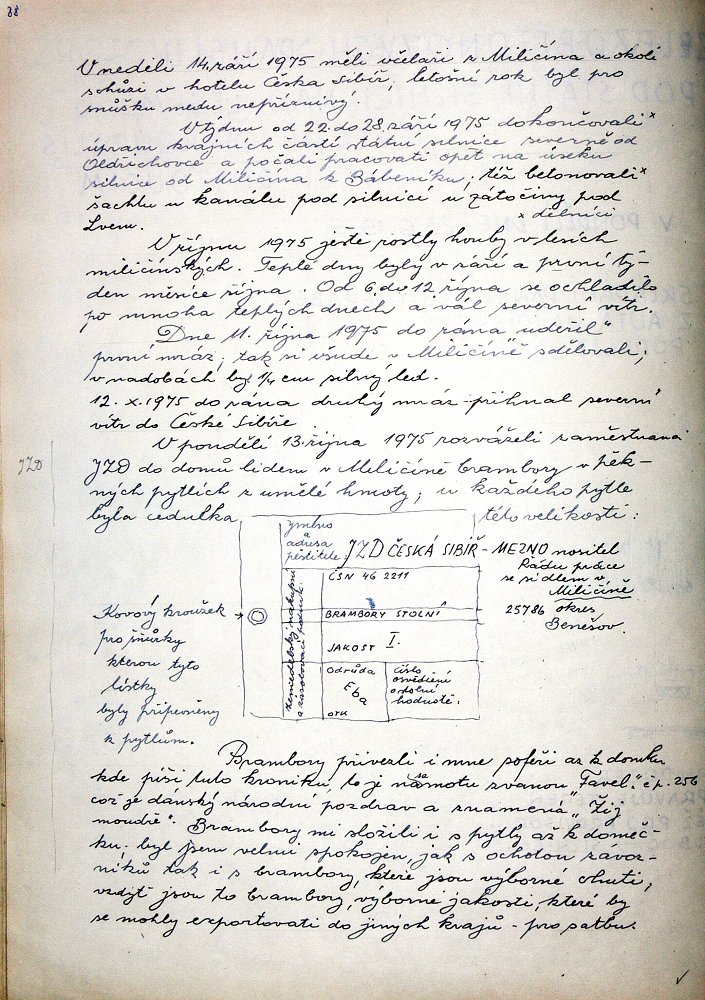 88
V neděli 14. září 1975 měli včelaři z Miličína a okolí
schůzi v hotelu Česká Sibiř, letošní rok byl pro
snůšku medu nepříznivý.
V týdnu od 22. do 28. září 1975 dokončovali x
úpravu krajních částí státní silnice severně od
Oldřichovce a počali pracovati opět na úseku
silnice od Miličína k Bábeníku; též betonovali x
šachtu u kanálu pod silnicí u zátočiny pod
Lvem. x dělníci
V říjnu 1975 ještě rostly houby v lesích
miličínských. Teplé dny byly v září a první tý-
den měsíce října. Od 6. do 12. října se ochladilo
po mnoha teplých dnech a vál severní vítr.
Dne 11. října 1975 do rána udeřil"
první mráz, tak si všude v Miličíně sdělovali;
v nádobách byl 1/4 cm silný led.
12. X. 1975 do rána druhý mráz - přihnal severní
vítr do České Sibiře
V pondělí 13. října 1975 rozváželi zaměstnanci
JZD
JZD do domů lidem v Miličíně brambory v pěk-
ných pytlích z umělé hmoty; u každého pytle
byla cedulka této velikosti:
jméno
a
adresa
pěstitele: JZD ČESKÁ SIBIŘ - MEZNO nositel
Řádu práce
se sídlem v
Miličíně
25786 okres
Benešov.
zemědělský nákupní
a zásobovací podnik.
ČSN 46 2211
BRAMBORY STOLNÍ
JAKOST I.
Odrůda
Eba
OTK
číslo
osvědčení
o stolní
hodnotě:
Kovový kroužek →
pro šňůrky
kterou tyto
lístky
byly připevněny
k pytlům.
Brambory přivezli i mne šoféři až k domku
kde píši tuto kroniku, to je na samotu zvanou „Favel“ č.p. 256
což je dánský národní pozdrav a znamená „Žij
moudře“. Brambory mi složili i s pytly až k domeč-
ku. byl jsem velmi spokojen, jak s ochotou závoz-
níků tak i s brambory, které jsou výborné chuti,
vždyť jsou to brambory, výborné jakosti, které by
se mohly exportovati do jiných krajů - pro satbu.
✓